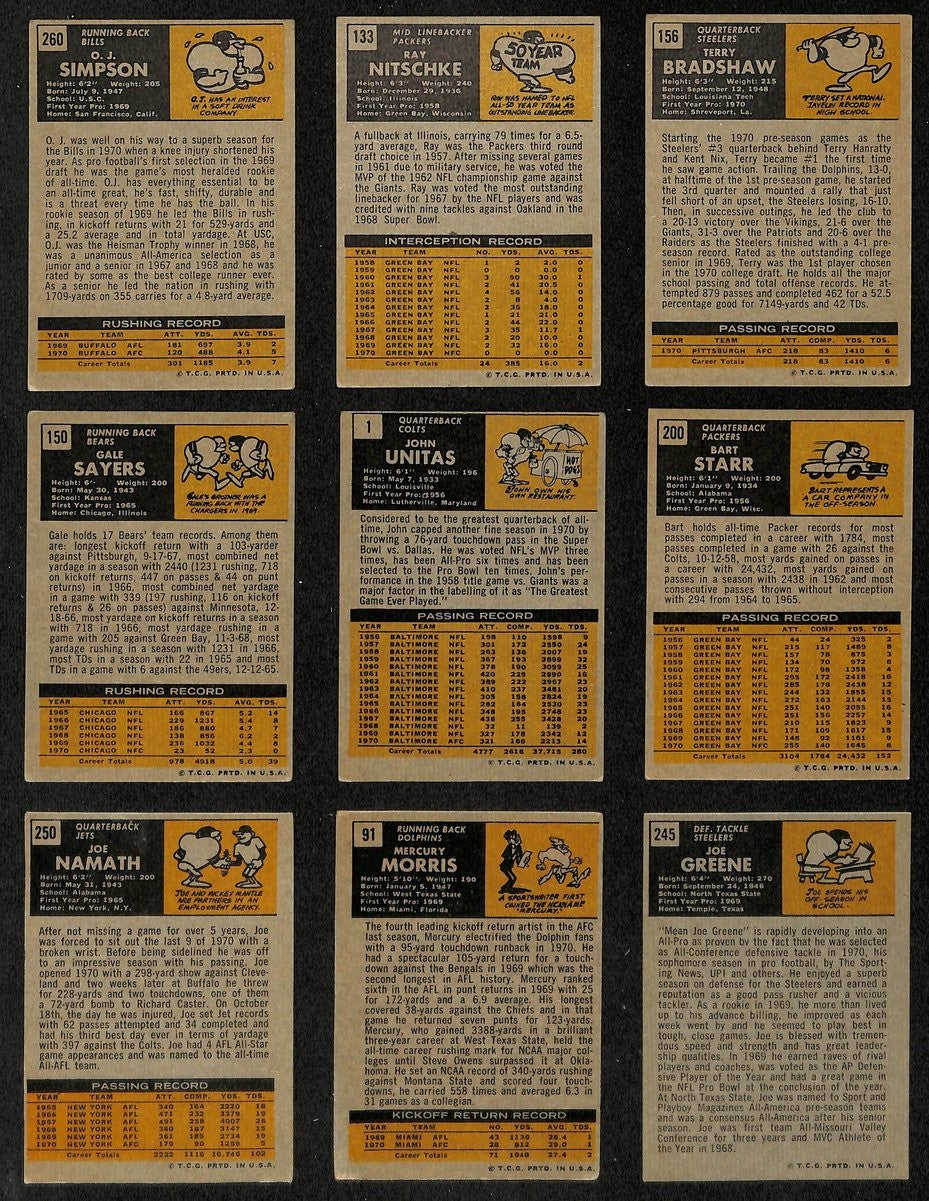 260
RUNNING BACK
BILLS
O. J.
SIMPSON
Height: 6'2" Weight: 205
Born: July 9, 1947
School: U.S.C.
First Year Pro: 1969
Home: San Francisco, Calif.
O.J. HAS AN INTEREST
IN A SOFT DRINK
COMPANY.
O. J. was well on his way to a superb season for
the Bills in 1970 when a knee injury shortened his
year. As pro football's first selection in the 1969
draft he was the game's most heralded rookie
of all-time. O.J. has everything essential to be
an all-time great, he's fast, shifty, durable and
is a threat every time he has the ball. In his
rookie season of 1969 he led the Bills in rush-
ing, in kickoff returns with 21 for 529-yards and
a 25.2 average and in total yardage. At USC,
O.J. was the Heisman Trophy winner in 1968, he
was a unanimous All-America selection as a
junior and a senior in 1967 and 1968 and he was
rated by some as the best college runner ever.
As a senior he led the nation in rushing with
1709-yards on 355 carries for a 4.8-yard average.
RUSHING RECORD
YEAR TEAM ATT. YDS. AVG. TDS.
1969 BUFFALO AFL 181 697 3.9 2
1970 BUFFALO AFC 120 488 4.1 5
Career Totals 301 1185 3.9 7
© T.C.G. PRTD. IN U.S.A.
133
MID LINEBACKER
PACKERS
RAY
NITSCHKE
Height: 6'3" Weight: 240
Born: December 29, 1936
School: Illinois
First Year Pro: 1958
Home: Green Bay, Wisconsin
50 YEAR
TEAM
RAY WAS NAMED TO NFL
ALL-50 YEAR TEAM AS
OUTSTANDING LINEBACKER.
A fullback at Illinois, carrying 79 times for a 6.5-
yard average, Ray was the Packers third round
draft choice in 1957. After missing several games
in 1961 due to military service, he was voted the
MVP of the 1962 NFL championship game against
the Giants. Ray was voted the most outstanding
linebacker for 1967 by the NFL players and was
credited with nine tackles against Oakland in the
1968 Super Bowl.
INTERCEPTION RECORD
YEAR TEAM NO. YDS. AVG. TDS.
1958 GREEN BAY NFL 1 2 2.0 0
1959 GREEN BAY NFL 0 0 0.0 0
1960 GREEN BAY NFL 3 90 30.0 1
1961 GREEN BAY NFL 2 41 20.5 0
1962 GREEN BAY NFL 4 56 14.0 0
1963 GREEN BAY NFL 2 8 4.0 0
1964 GREEN BAY NFL 2 36 18.0 0
1965 GREEN BAY NFL 1 21 21.0 0
1966 GREEN BAY NFL 2 44 22.0 0
1967 GREEN BAY NFL 3 35 11.7 1
1968 GREEN BAY NFL 2 20 10.0 0
1969 GREEN BAY NFL 2 32 16.0 0
1970 GREEN BAY NFC 0 0 0.0 0
Career Totals 24 385 16.0 2
© T.C.G. PRTD. IN U.S.A.
156
QUARTERBACK
STEELERS
TERRY
BRADSHAW
Height: 6'3" Weight: 215
Born: September 12, 1948
School: Louisiana Tech
First Year Pro: 1970
Home: Shreveport, La.
TERRY SET A NATIONAL
JAVELIN RECORD IN
HIGH SCHOOL.
Starting the 1970 pre-season games as the
Steelers' #3 quarterback behind Terry Hanratty
and Kent Nix, Terry became #1 the first time
he saw game action. Trailing the Dolphins, 13-0,
at halftime of the 1st pre-season game, he started
the 3rd quarter and mounted a rally that just
fell short of an upset, the Steelers losing, 16-10.
Then, in successive outings, he led the club to
a 20-13 victory over the Vikings, 21-6 over the
Giants, 31-3 over the Patriots and 20-6 over the
Raiders as the Steelers finished with a 4-1 pre-
season record. Rated as the outstanding college
senior in 1969, Terry was the 1st player chosen
in the 1970 college draft. He holds all the major
school passing and total offense records. He at-
tempted 879 passes and completed 462 for a 52.5
percentage good for 7149-yards and 42 TDs.
PASSING RECORD
YEAR TEAM ATT. COMP. YDS. TDS.
1970 PITTSBURGH AFC 218 83 1410 6
Career Totals 218 83 1410 6
© T.C.G. PRTD. IN U.S.A.
150
RUNNING BACK
BEARS
GALE
SAYERS
Height: 6'- Weight: 200
Born: May 30, 1943
School: Kansas
First Year Pro: 1965
Home: Chicago, Illinois
GALE'S BROTHER WAS A
RUNNING BACK WITH THE
CHARGERS IN 1969.
Gale holds 17 Bears' team records. Among them
are: longest kickoff return with a 103-yarder
against Pittsburgh, 9-17-67, most combined net
yardage in a season with 2440 (1231 rushing, 718
on kickoff returns, 447 on passes & 44 on punt
returns) in 1966, most combined net yardage
in a game with 339 (197 rushing, 116 on kickoff
returns & 26 on passes) against Minnesota, 12-
18-66, most yardage on kickoff returns in a season
with 718 in 1966, most yardage rushing in a
game with 205 against Green Bay, 11-3-68, most
yardage rushing in a season with 1231 in 1966,
most TDs in a season with 22 in 1965 and most
TDs in a game with 6 against the 49ers, 12-12-65.
RUSHING RECORD
YEAR TEAM ATT. YDS. AVG. TDS.
1965 CHICAGO NFL 166 867 5.2 14
1966 CHICAGO NFL 229 1231 5.4 8
1967 CHICAGO NFL 186 880 4.7 7
1968 CHICAGO NFL 138 856 6.2 2
1969 CHICAGO NFL 236 1032 4.4 8
1970 CHICAGO NFC 23 52 2.3 0
Career Totals 978 4918 5.0 39
© T.C.G. PRTD. IN U.S.A.
1
QUARTERBACK
COLTS
JOHN
UNITAS
Height: 6'1" Weight: 196
Born: May 7, 1933
School: Louisville
First Year Pro: 1956
Home: Lutherville, Maryland
HOT
DOGS
JOHN OWN HIS
OWN RESTAURANT.
Considered to be the greatest quarterback of all-
time, John capped another fine season in 1970 by
throwing a 76-yard touchdown pass in the Super
Bowl vs. Dallas. He was voted NFL's MVP three
times, has been All-Pro six times and has been
selected to the Pro Bowl ten times. John's per-
formance in the 1958 title game vs. Giants was a
major factor in the labelling of it as "The Greatest
Game Ever Played."
PASSING RECORD
YEAR TEAM ATT. COMP. YDS. TDS.
1956 BALTIMORE NFL 198 110 1598 9
1957 BALTIMORE NFL 301 172 2550 24
1958 BALTIMORE NFL 263 136 2007 19
1959 BALTIMORE NFL 367 193 2899 32
1960 BALTIMORE NFL 378 190 3099 25
1961 BALTIMORE NFL 420 229 2990 16
1962 BALTIMORE NFL 389 222 2967 23
1963 BALTIMORE NFL 410 237 3481 20
1964 BALTIMORE NFL 305 158 2824 19
1965 BALTIMORE NFL 282 164 2530 23
1966 BALTIMORE NFL 348 195 2748 23
1967 BALTIMORE NFL 436 255 3428 20
1968 BALTIMORE NFL 32 11 139 2
1969 BALTIMORE NFL 327 178 2342 12
1970 BALTIMORE AFC 321 166 2213 14
Career Totals 4777 2616 37,715 280
© T.C.G. PRTD. IN U.S.A.
200
QUARTERBACK
PACKERS
BART
STARR
Height: 6'1" Weight: 200
Born: January 9, 1934
School: Alabama
First Year Pro: 1956
Home: Green Bay, Wisc.
BART REPRESENTS A
A CAR COMPANY IN
THE OFF-SEASON.
Bart holds all-time Packer records for most
passes completed in a career with 1784, most
passes completed in a game with 26 against the
Colts, 10-12-58, most yards gained on passes in
a career with 24,432, most yards gained on
passes in a season with 2438 in 1962 and most
consecutive passes thrown without interception
with 294 from 1964 to 1965.
PASSING RECORD
YEAR TEAM ATT. COMP. YDS. TDS.
1956 GREEN BAY NFL 44 24 325 2
1957 GREEN BAY NFL 215 117 1489 8
1958 GREEN BAY NFL 157 78 875 3
1959 GREEN BAY NFL 134 70 972 6
1960 GREEN BAY NFL 172 98 1358 4
1961 GREEN BAY NFL 295 172 2418 16
1962 GREEN BAY NFL 285 178 2438 12
1963 GREEN BAY NFL 244 132 1855 15
1964 GREEN BAY NFL 272 163 2144 15
1965 GREEN BAY NFL 251 140 2055 16
1966 GREEN BAY NFL 251 156 2257 14
1967 GREEN BAY NFL 210 115 1823 9
1968 GREEN BAY NFL 171 109 1617 15
1969 GREEN BAY NFL 148 92 1161 9
1970 GREEN BAY NFC 255 140 1645 8
Career Totals 3104 1784 24,432 152
© T.C.G. PRTD. IN U.S.A.
250
QUARTERBACK
JETS
JOE
NAMATH
Height: 6'2" Weight: 200
Born: May 31, 1943
School: Alabama
First Year Pro: 1965
Home: New York, N.Y.
JOE AND MICKEY MANTLE
ARE PARTNERS IN AN
EMPLOYMENT AGENCY.
After not missing a game for over 5 years, Joe
was forced to sit out the last 9 of 1970 with a
broken wrist. Before being sidelined he was off
to an impressive season with his passing. Joe
opened 1970 with a 298-yard show against Cleve-
land and two weeks later at Buffalo he threw
for 228-yards and two touchdowns, one of them
a 72-yard bomb to Richard Caster. On October
18th, the day he was injured, Joe set Jet records
with 62 passes attempted and 34 completed and
had his third best day ever in terms of yardage
with 397 against the Colts. Joe had 4 AFL All-Star
game appearances and was named to the all-time
All-AFL team.
PASSING RECORD
YEAR TEAM ATT. COMP. YDS. TDS.
1965 NEW YORK AFL 340 164 2220 18
1966 NEW YORK AFL 471 232 3379 19
1967 NEW YORK AFL 491 258 4007 26
1968 NEW YORK AFL 380 187 3147 15
1969 NEW YORK AFL 361 185 2734 19
1970 NEW YORK AFC 179 90 1259 5
Career Totals 2222 1116 16,746 102
© T.C.G. PRTD. IN U.S.A.
91
RUNNING BACK
DOLPHINS
MERCURY
MORRIS
Height: 5'10" Weight: 190
Born: January 5, 1947
School: West Texas State
First Year Pro: 1969
Home: Miami, Florida
A SPORTSWRITER FIRST
COINED THE NICKNAME
"MERCURY."
The fourth leading kickoff return artist in the AFC
last season, Mercury electrified the Dolphin fans
with a 95-yard touchdown runback in 1970. He
had a spectacular 105-yard return for a touch-
down against the Bengals in 1969 which was the
second longest in AFL history. Mercury ranked
sixth in the AFL in punt returns in 1969 with 25
for 172-yards and a 6.9 average. His longest
covered 38-yards against the Chiefs and in that
game he returned seven punts for 123-yards.
Mercury, who gained 3388-yards in a brilliant
three-year career at West Texas State, held the
all-time career rushing mark for NCAA major col-
leges until Steve Owens surpassed it at Okla-
homa. He set an NCAA record of 340-yards rushing
against Montana State and scored four touch-
downs, he carried 558 times and averaged 6.3 in
31 games as a collegian.
KICKOFF RETURN RECORD
YEAR TEAM NO. YDS. AVG. TDS.
1969 MIAMI AFL 43 1136 26.4 1
1970 MIAMI AFC 28 812 29.0 1
Career Totals 71 1948 27.4 2
© T.C.G. PRTD. IN U.S.A.
245
DEF. TACKLE
STEELERS
JOE
GREENE
Height: 6'4" Weight: 270
Born: September 24, 1946
School: North Texas State
First Year Pro: 1969
Home: Temple, Texas
JOE SPENDS HIS
OFF-SEASON IN
SCHOOL.
"Mean Joe Greene" is rapidly developing into an
All-Pro as proven by the fact that he was selected
as All-Conference defensive tackle in 1970, his
sophomore season in pro football, by The Sport-
ing News, UPI and others. He enjoyed a superb
season on defense for the Steelers and earned a
reputation as a good pass rusher and a vicious
tackler. As a rookie in 1969, he more than lived
up to his advance billing, he improved as each
week went by and he seemed to play best in
tough, close games. Joe is blessed with tremen-
dous speed and strength and has great leader-
ship qualities. In 1969 he earned raves of rival
players and coaches, was voted as the AP Defen-
sive Player of the Year and had a great game in
the NFL Pro Bowl at the conclusion of the year.
At North Texas State, Joe was named to Sport and
Playboy Magazines All-America pre-season teams
and was a consensus All-America after his senior
season. Joe was first team All-Missouri Valley
Conference for three years and MVC Athlete of
the Year in 1968.
© T.C.G. PRTD. IN U.S.A.